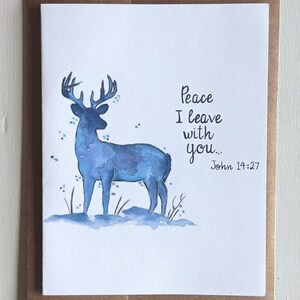 Peace
I leave
with
you...
John 14:27